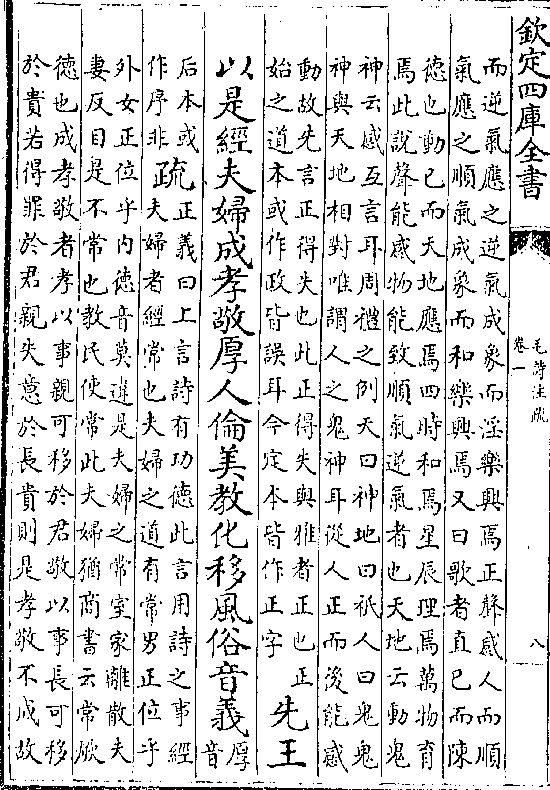 欽定四庫全書
毛詩注疏
卷一
八
而逆氣應之逆氣成象而淫樂興焉正聲感人而順
氣應之順氣成象而和樂興焉又曰歌者直已而陳
德也動已而天地應焉四時和焉星辰理焉萬物育
焉此說聲能感物能致順氣逆氣者也天地云動鬼
神云感互言耳周禮之例天曰神地曰祇人曰鬼鬼
神與天地相對唯謂人之鬼神耳從人正而後能感
動故先言正得失也此正得失與雅者正也正
始之道本或作政皆誤耳今定本皆作正字
先王
以是經夫婦成孝敬厚人倫美教化移風俗音義厚音
后本或
作序非
疏
正義曰上言詩有功德此言用詩之事經
夫婦者經常也夫婦之道有常男正位乎
外女正位乎内德音莫違是夫婦之常室家離散夫
妻反目是不常也教民使常此夫婦猶商書云常厥
德也成孝敬者孝以事親可移於君敬以事長可移
於貴若得罪於君親失意於長貴則是孝敬不成故